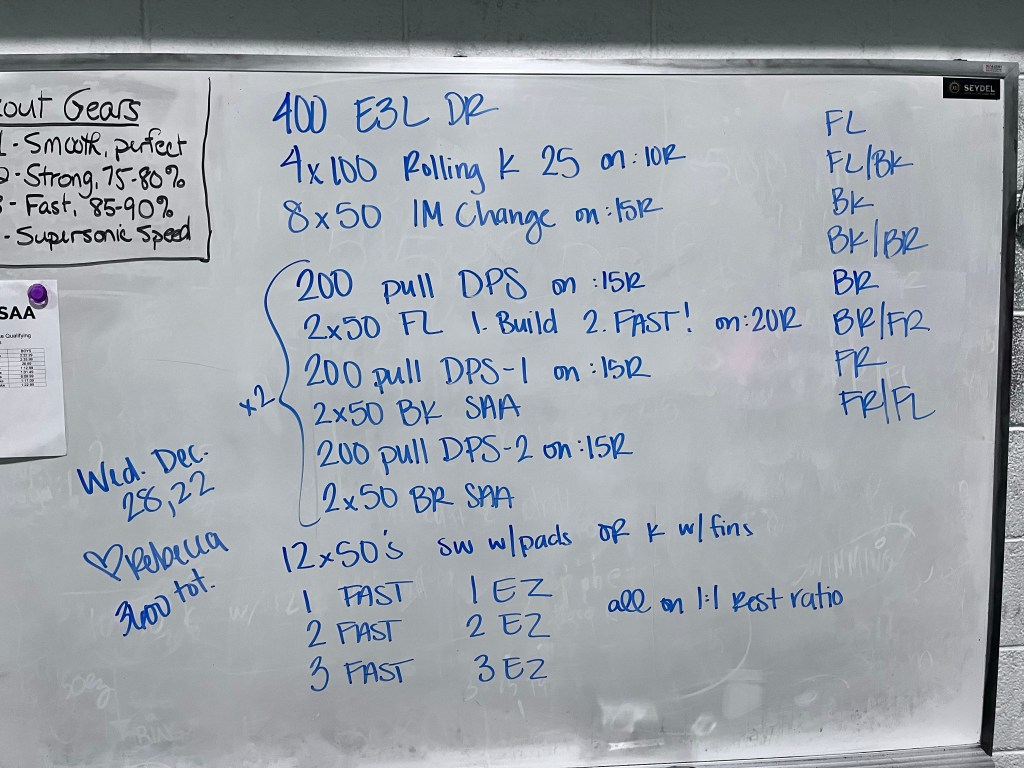 out Gears
1 - Smooth, perfect
2 - Strong, 75-80%
- Fast, 85-90%
- Supersonic Speed
SEYDEL
400 E3L DR
4x100 Rolling K 25 on :10R
8x50 IM Change on :15R
x2
200 pull DPS on :15R
2x50 FL 1. Build 2. FAST! on :20R
200 pull DPS-1 on :15R
2x50 BK SAA
200 pull DPS-2 on :15R
2x50 BR SAA
12x50's sw w/pads OR K w/fins
1 FAST 1 EZ
2 FAST 2 EZ
3 FAST 3 EZ
all on 1:1 Rest ratio
FL
FL/BK
BK
BK/BR
BR
BR/FR
FR
FR/FL
SAA
Qualifying
Wed. Dec.
28, 22
♡ Rebecca
tot.